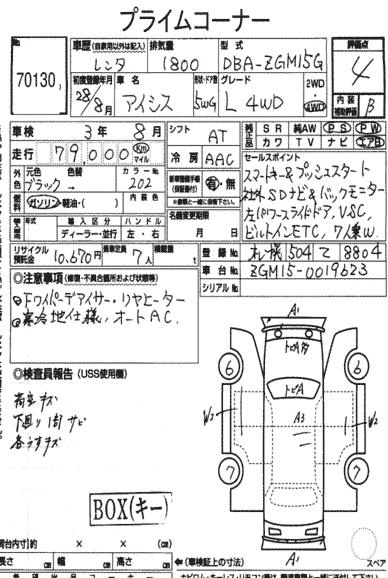 プライムコーナー
No. 70130
車歴 (自家用以外は記入) レンタ
排気量 1800
型式 DBA-ZGM15G
評価点 4
初度登録年月 28年/8月
車名 アイシス
形状・ドア数 5WG
グレード L 4WD
2WD・4WD
内装補助評価 B
車検 3年 8月
シフト AT
純正品 SR 純AW PS PW
カワ TV ナビ エアB
走行 79,000 Km マイル
冷房 AAC
セールスポイント
スマートキー&プッシュスタート
社外SDナビ&バックモニター
左パワースライドドア、VSC、
ビルトインETC、7人乗W
外色 ブラック→
色替
カラーNo. 202
新車整備手帳(保証書付) 有・無
※書類と一緒に保管下さい。
燃料 ガソリン・軽油・( )
内装色
名義変更期限 月 日
輸入車 年式
輸入区分 ディーラー・並行
ハンドル 左・右
リサイクル預託金 10,670円
乗車定員 7人
積載量 t
登録No. 札幌 504 て 8804
車台No. ZGM15-0019623
シリアルNo.
◎注意事項 (修復・不具合箇所および状態等)
・Fワイパーデアイサー・リヤヒーター
・寒冷地仕様、オートAC.
◎検査員報告 (USS使用欄)
荷室キズ
下廻り1部サビ
各うすキズ
BOX(キー)
A1
トビA
トビA
A3
6 6
W2 W2
7 7
A1
スペア
荷台内寸 約 × × (cm)
長さ cm 幅 cm 高さ cm ←(車検証上の寸法)